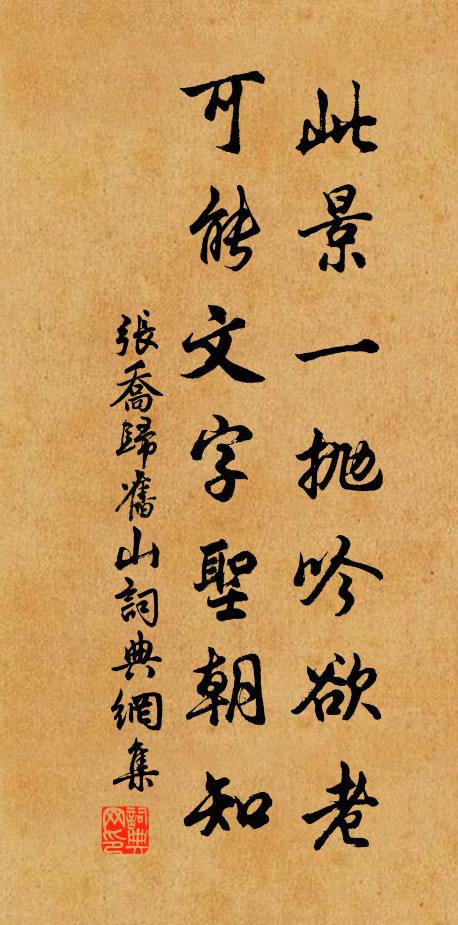 此景一拋吟欲老
可能文字聖朝知
張喬歸舊山詞典網集
詞典
网印